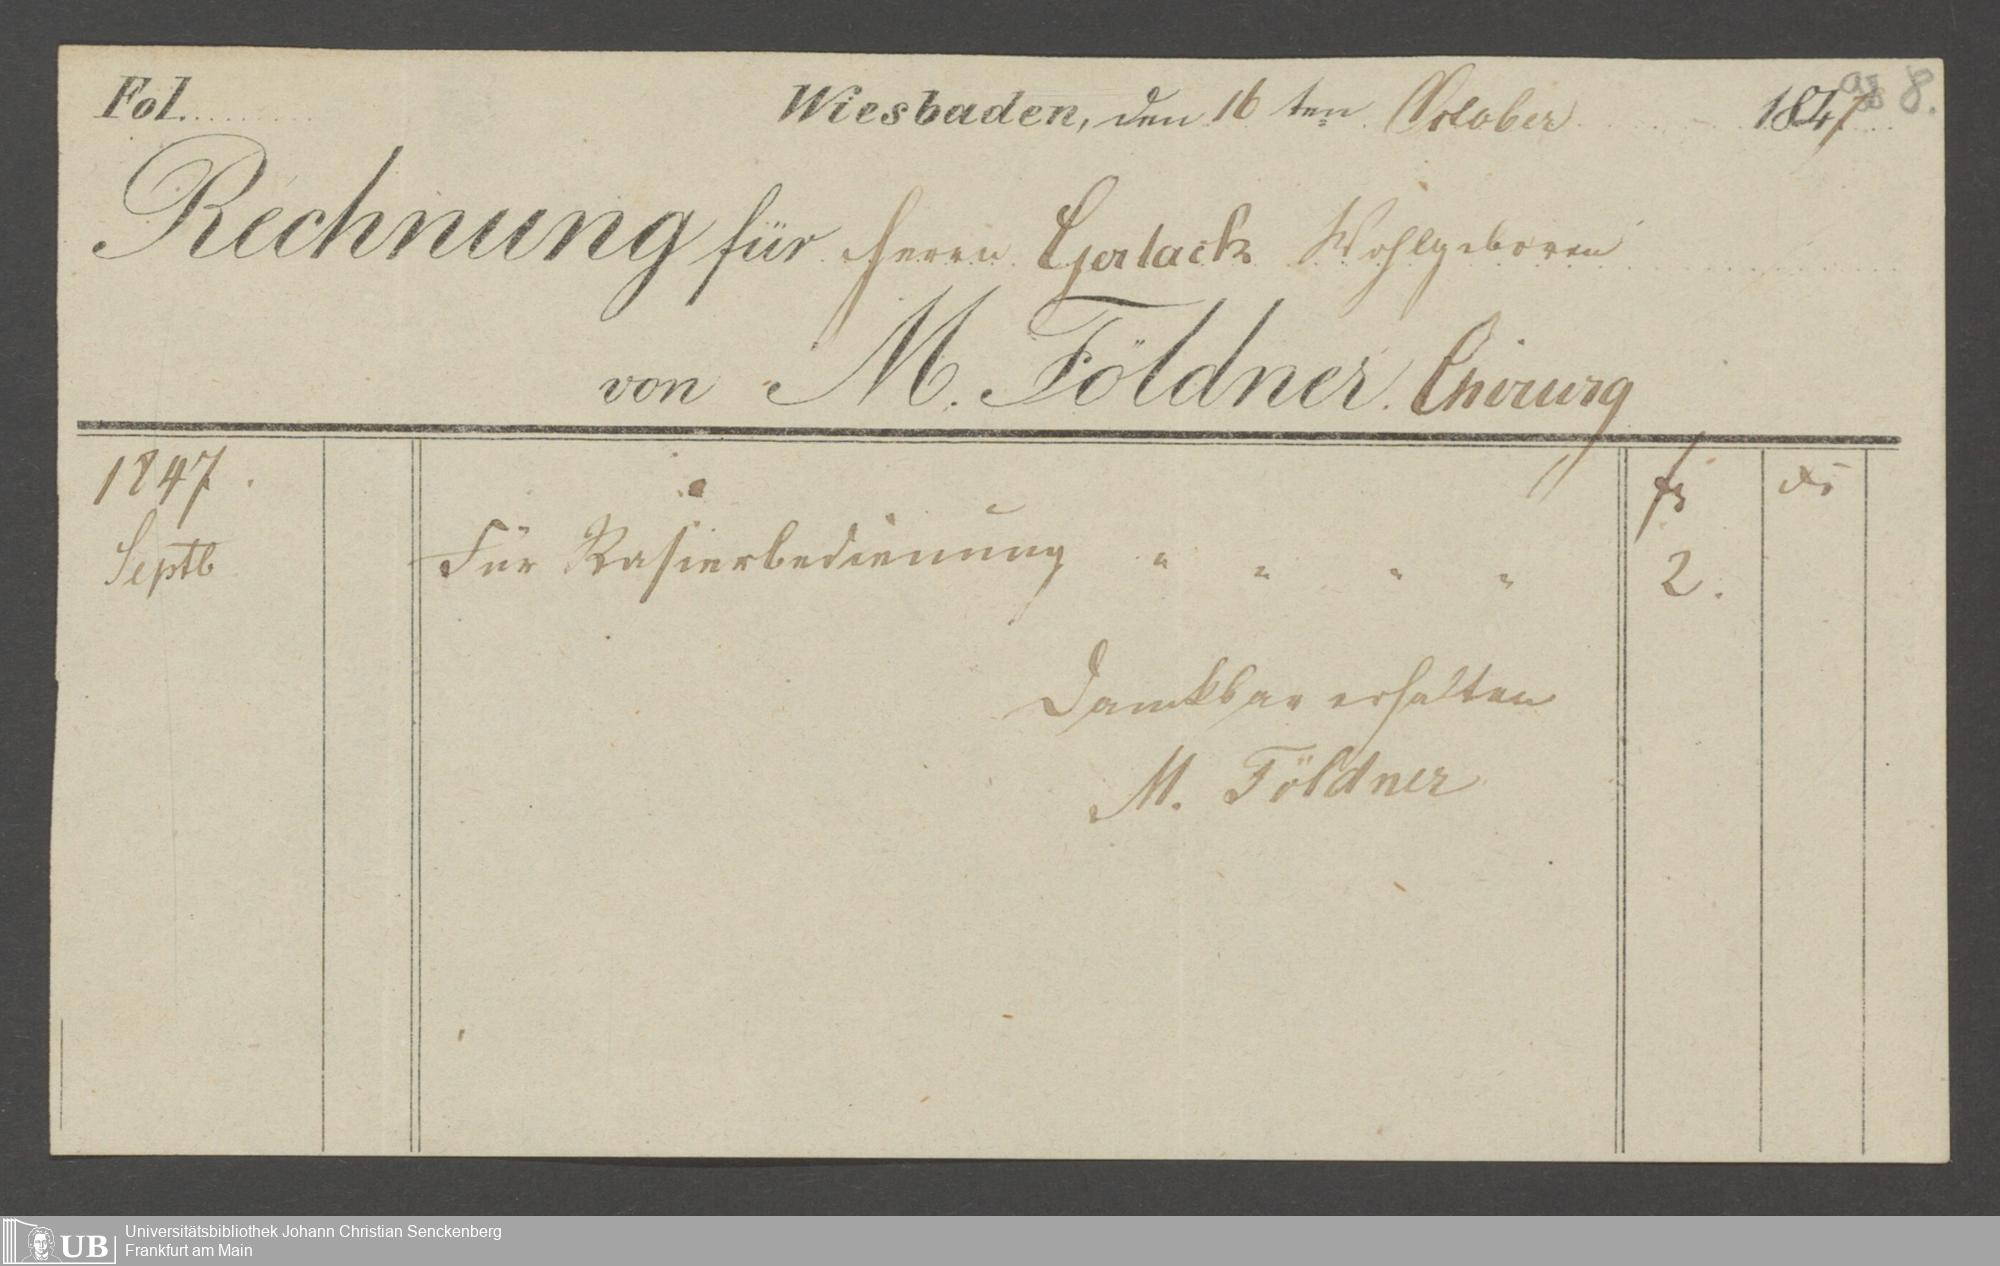 Fol. Wiesbaden, den 16ten October 1847
8.
Rechnung für Herrn Gerlach Wohlgeboren
von M. Földner. Chirurg
1847.
Septb Für Rasierbedienung " " " " 2.
Dankbar erhalten
M. Földner
Universitätsbibliothek Johann Christian Senckenberg
UB Frankfurt am Main